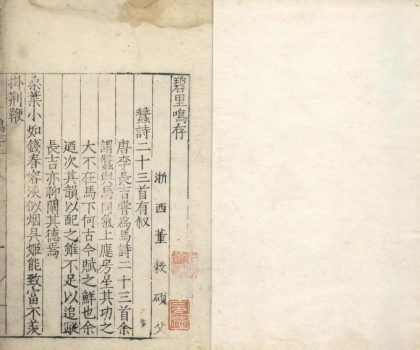 碧里鳴存
浙西董穀碩父
蠶詩二十三首有叙
唐李長吉嘗爲馬詩二十三首余
謂蠶與馬同氣上應房星其功之
大不在馬下何古今賦之鮮也余
迺次其韻以配之雖不足以追蹤
長吉亦聊闡其德焉
桑葉小如錢春容淡似烟姬能致富不羨
掛荆鞭